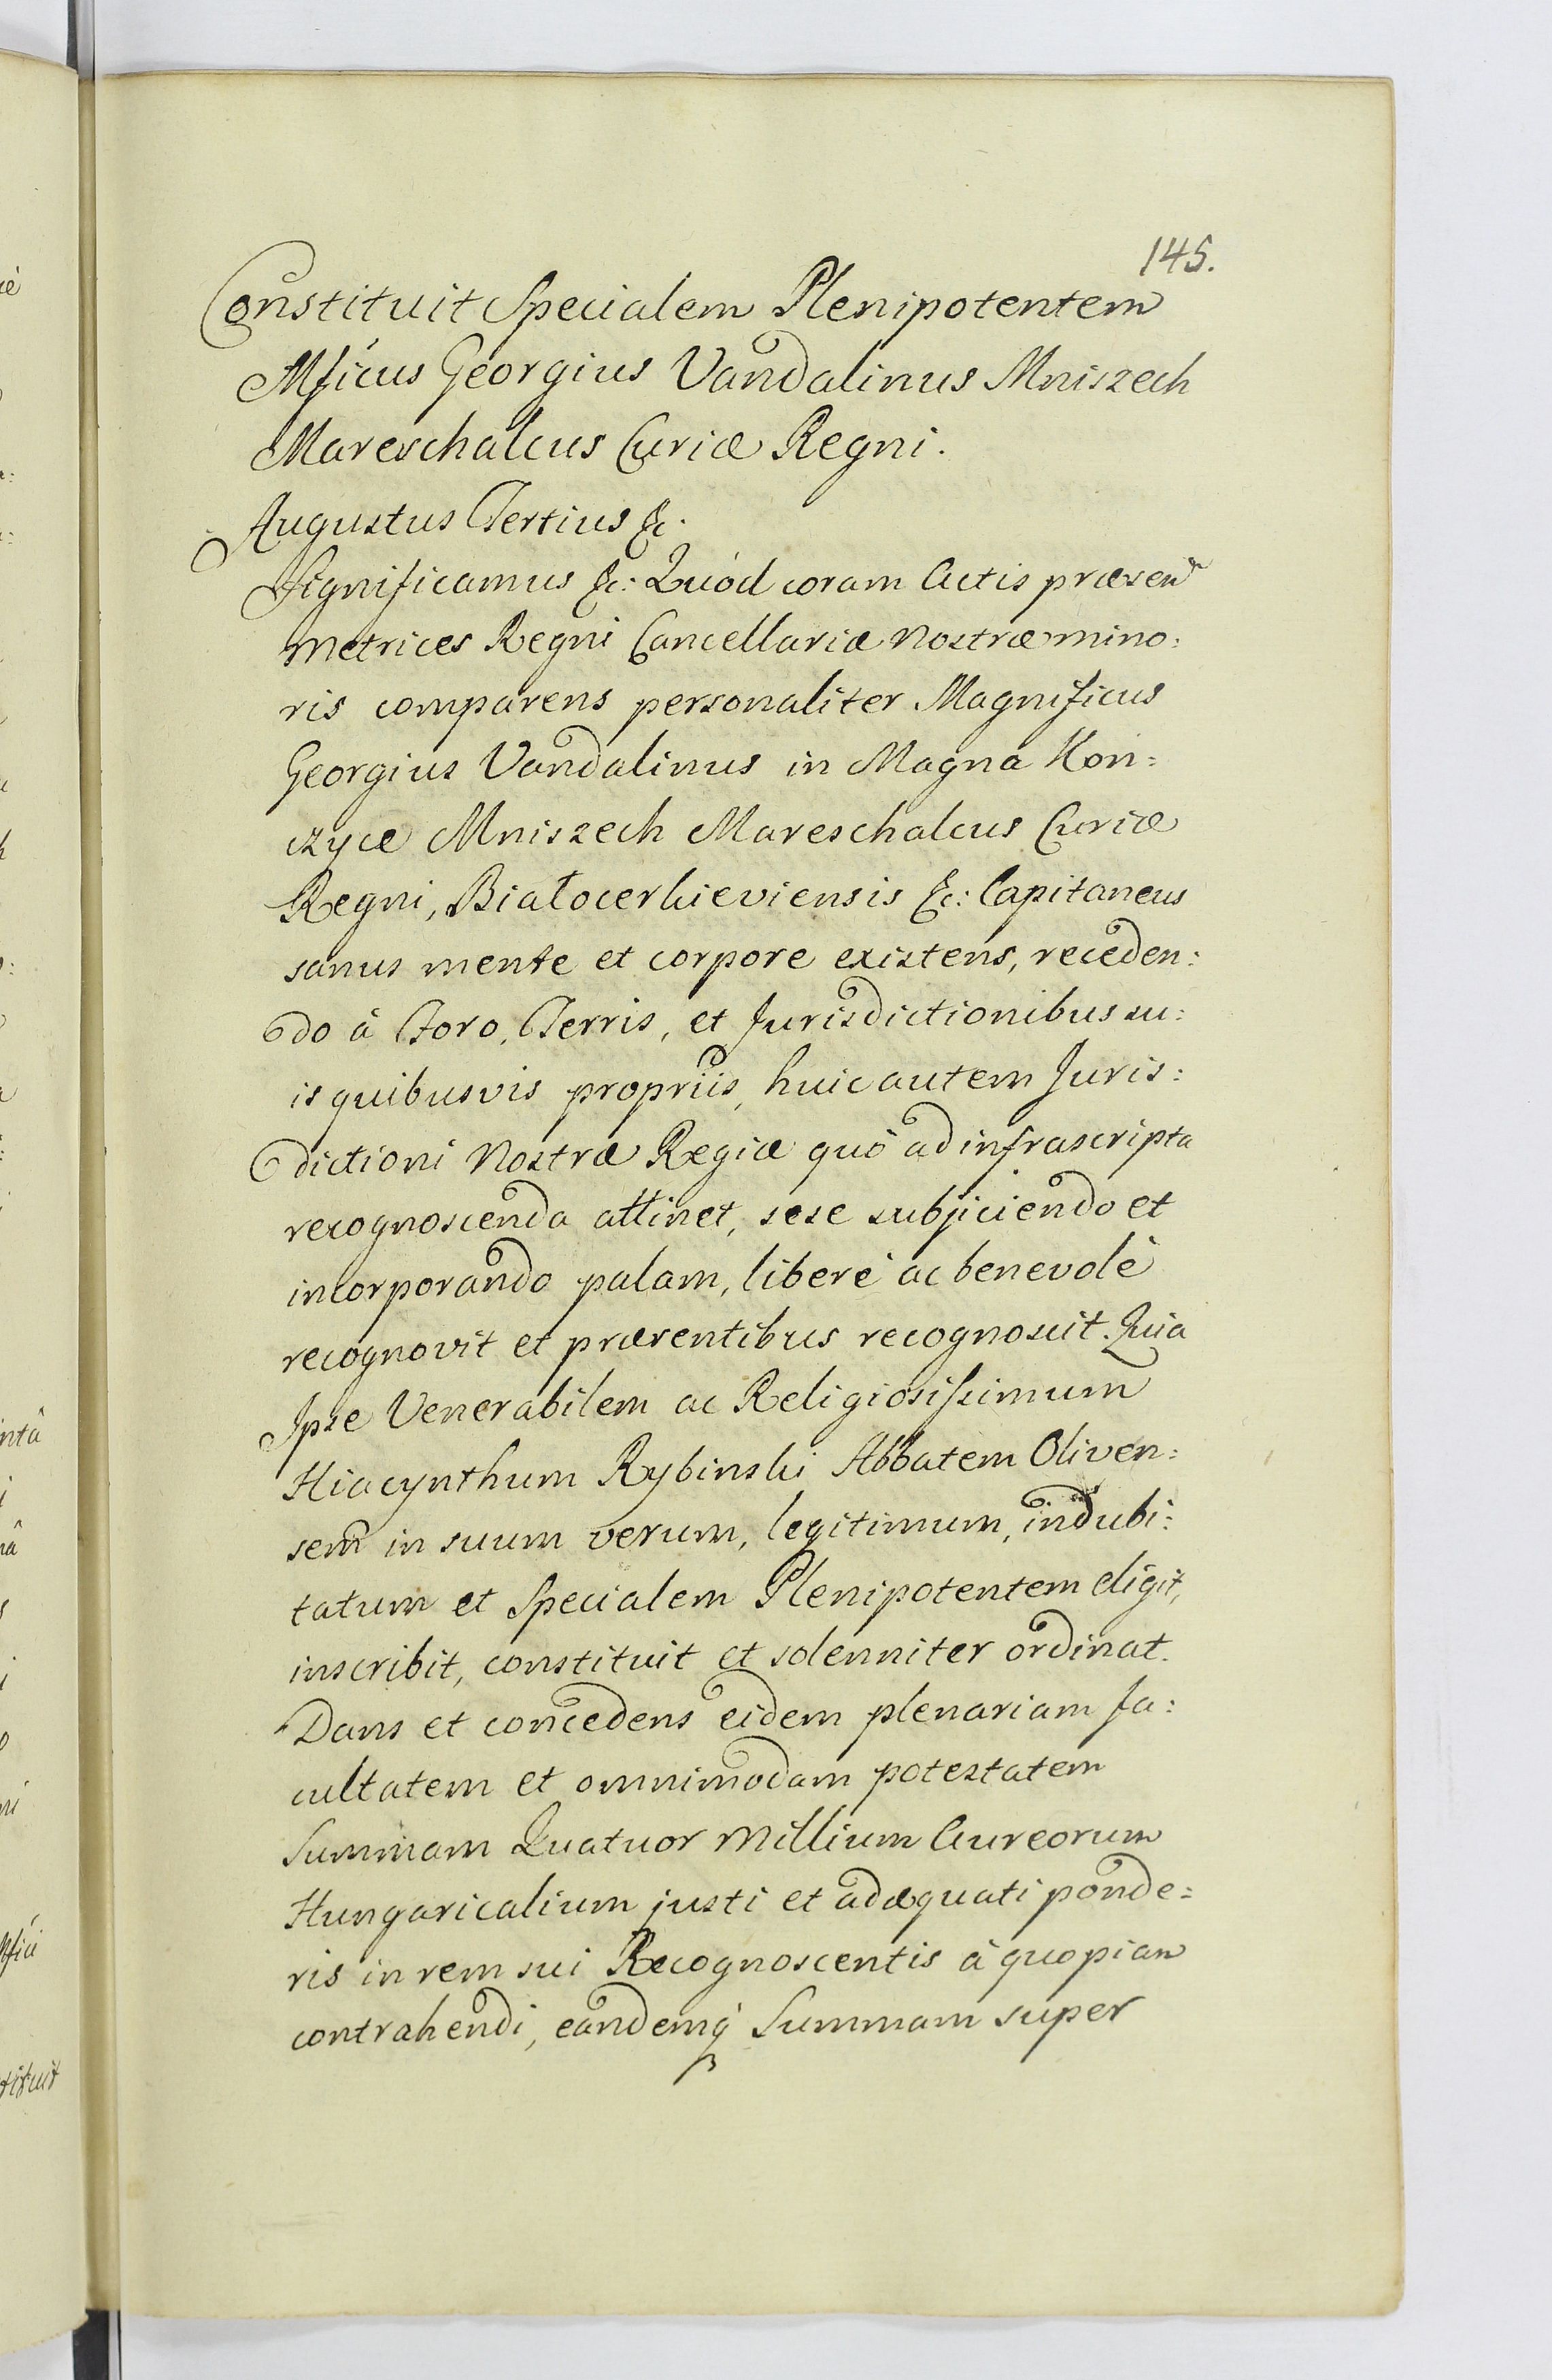 145.
Constituit Specialem Plenipotentem
Mficus Georgius Vandalinus Mniszech
Mareschalcus Curiæ Regni.
Augustus Tertius &c.
Significamus &c: Quód coram Actis præsen
Metrices Regni Cancellariæ Nostræ mino:
ris comparens personaliter Magnificus
Georgius Vandalinus in Magna Kon:
czyce Mniszech Mareschalcus Curiæ
Regni, Białocerkieviensis &c: Capitaneus
sanus mente et corpore existens, receden:
do â Foro, Terris, et Jurisdictionibus su:
is quibusvis proprijs, huic autem Juris:
dictioni Nostræ Regiæ quò ad infrascripta
recognoscenda attinet, sese subjiciendo et
incorporando palam, liberè ac benevolè
recognovit et præsentibus recognoscit. Quia
Ipse Venerabilem ac Religiosissimum
Hiacynthum Rybinski Abbatem Oliven:
sem in suum verum, legitimum, indubi:
tatum et Specialem Plenipotentem eligit,
inscribit, constituit et solenniter ordinat.
Dans et concedens eidem plenariam fa:
cultatem et omnimodam potestatem
Summam Quatuor Millium Aureorum
Hungaricalium justi et adæquati ponde:
ris in rem sui Recognoscentis â quopiam
contrahendi, eandemq́ Summam super
ntâ
Mfici
stituit